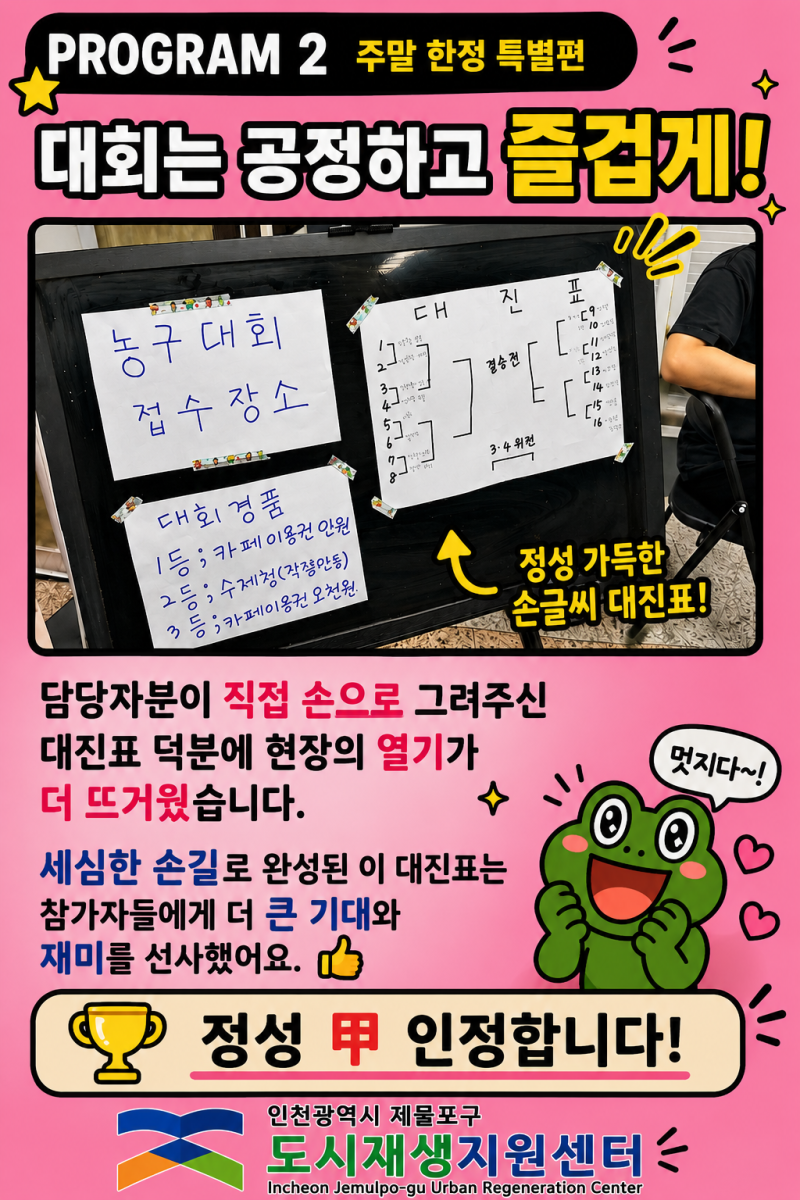 PROGRAM 2 주말 한정 특별편
대회는 공정하고 즐겁게!
농구 대회
접수장소
대회경품
1등 ; 카페이용권 만원
2등 ; 수제청(작쫑만동)
3등 ; 카페이용권 오천원.
대 진 표
1
2
3
4
5
6
7
8
결승전
3·4위전
9
10
11
12
13
14
15
16
정성 가득한
손글씨 대진표!
담당자분이 직접 손으로 그려주신
대진표 덕분에 현장의 열기가
더 뜨거웠습니다.
멋지다~!
세심한 손길로 완성된 이 대진표는
참가자들에게 더 큰 기대와
재미를 선사했어요.
정성 甲 인정합니다!
인천광역시 제물포구
도시재생지원센터
Incheon Jemulpo-gu Urban Regeneration Center